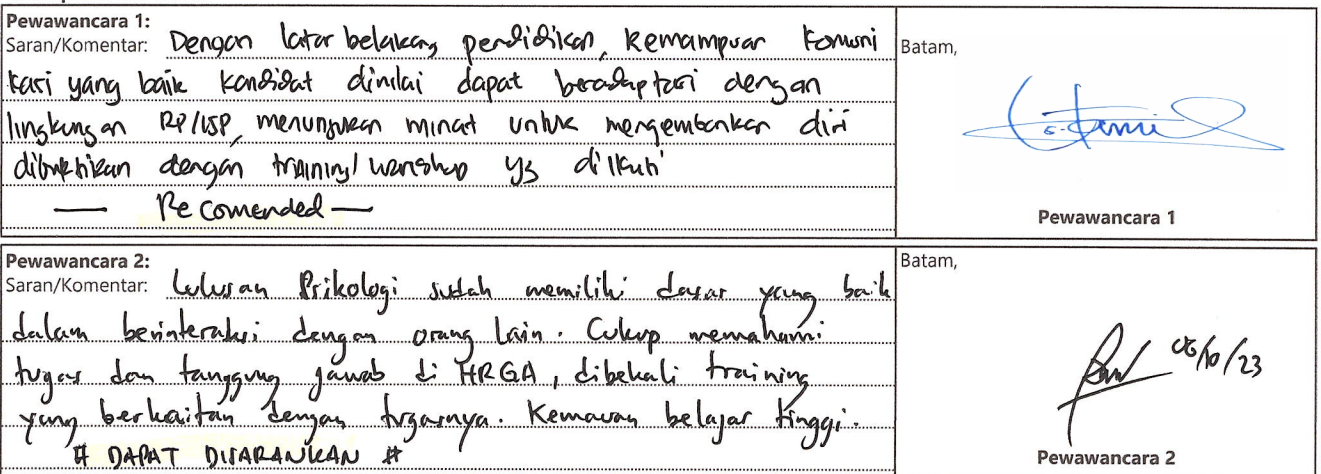 Pewawancara 1:
Saran/Komentar: Dengan latar belakang pendidikan, kemampuan komuni
kasi yang baik kandidat dinilai dapat beradaptasi dengan
lingkungan menunjukan minat untuk mengembankan diri
dibuktikan dengan training/ yg diikuti
— Recomended —
Batam,
Pewawancara 1
Pewawancara 2:
Saran/Komentar: Lulusan Psikologi sudah memiliki dasar yang baik
dalam berinteraksi dengan orang lain. Cukup memahami
tugas dan tanggung jawab di HRGA, dibekali training
yang berkaitan dengan tugasnya. Kemauan belajar tinggi.
# DAPAT DISARANKAN #
Batam,
06/10/23
Pewawancara 2